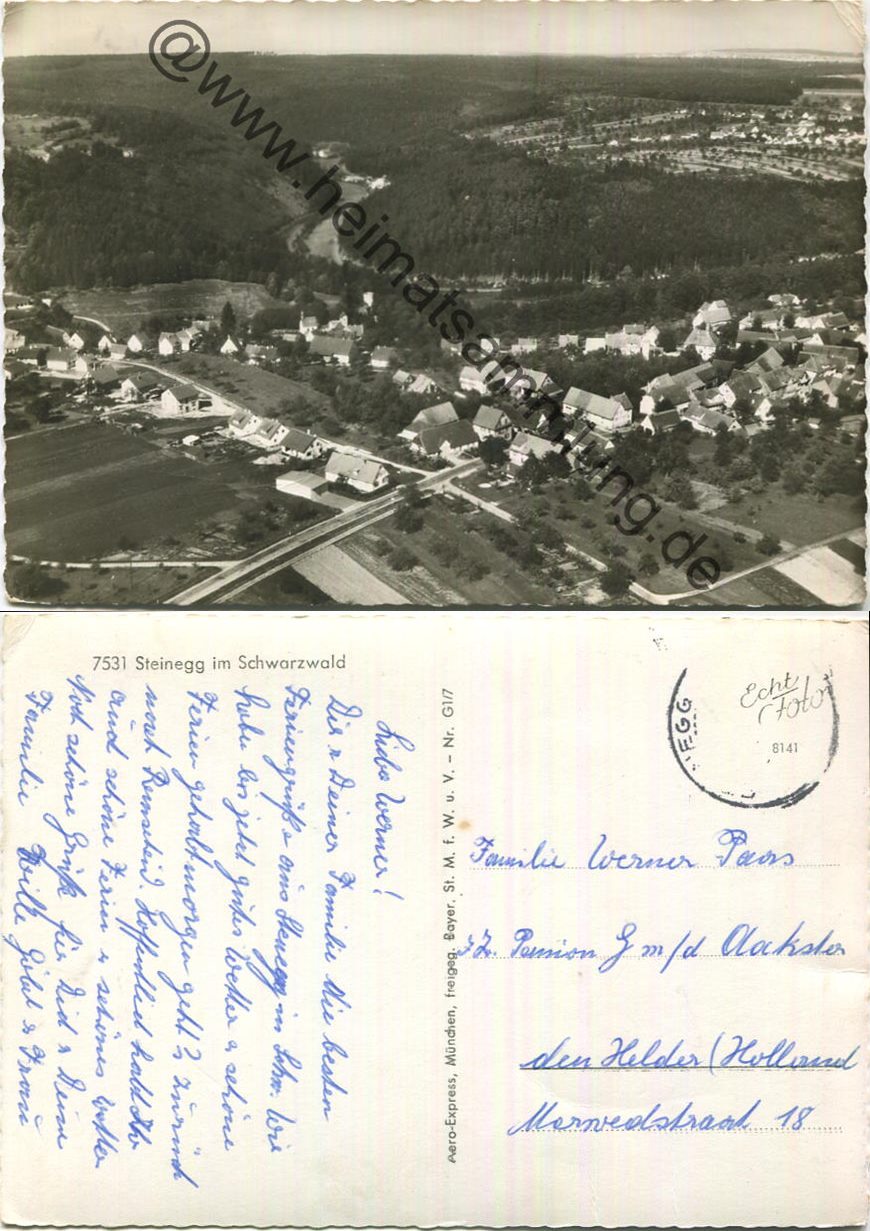 @www.heimatsammlung.de
7531 Steinegg im Schwarzwald
Liebe Werner!
Dir u Deiner Familie die besten
Feriengrüße aus in Schw. Wir
habe bis jetzt gutes Wetter u schöne
Ferien gehabt morgen geht's zurück
nach Remscheid. Hoffentlich habt Ihr
auch schöne Ferien u schönes Wetter
Noch schöne Grüße für Dich u Deine
Familie Willi u Frau
Aero-Express, München, freigeg. Bayer. St. M. f. W. u. V. – Nr. G1/7
EGG
Echt
Foto
8141
Familie Werner Paas
z.Z. Pension G m/d
den Helder (Holland
18